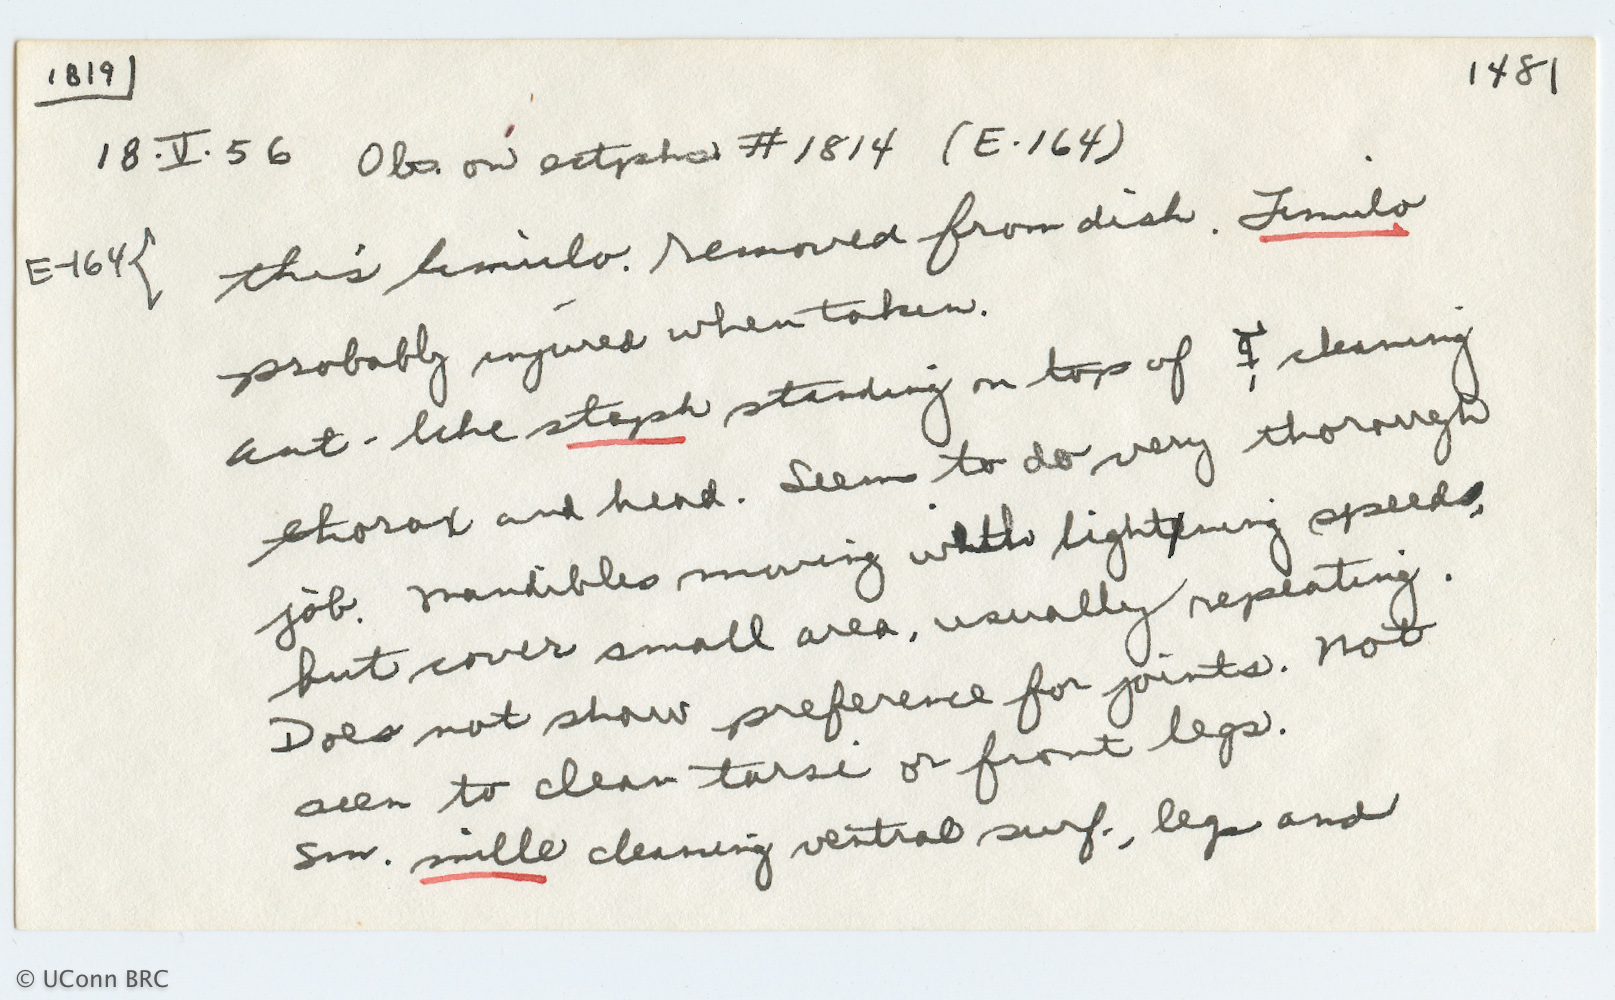 1819 1481
18.V.56 Obs. on ectophs. #1814 (E-164)
E-164{ this limulo. removed from dish. Limulo
probably injured when taken.
ant-like staph standing on top of cleaning
thorax and head. Seems to do very thorough
job. Mandibles moving with lightning speeds,
but cover small area, usually repeating.
Does not show preference for joints. Not
seen to clean tarsi or front legs.
Sm. mille cleaning ventral surf., legs and
© UConn BRC